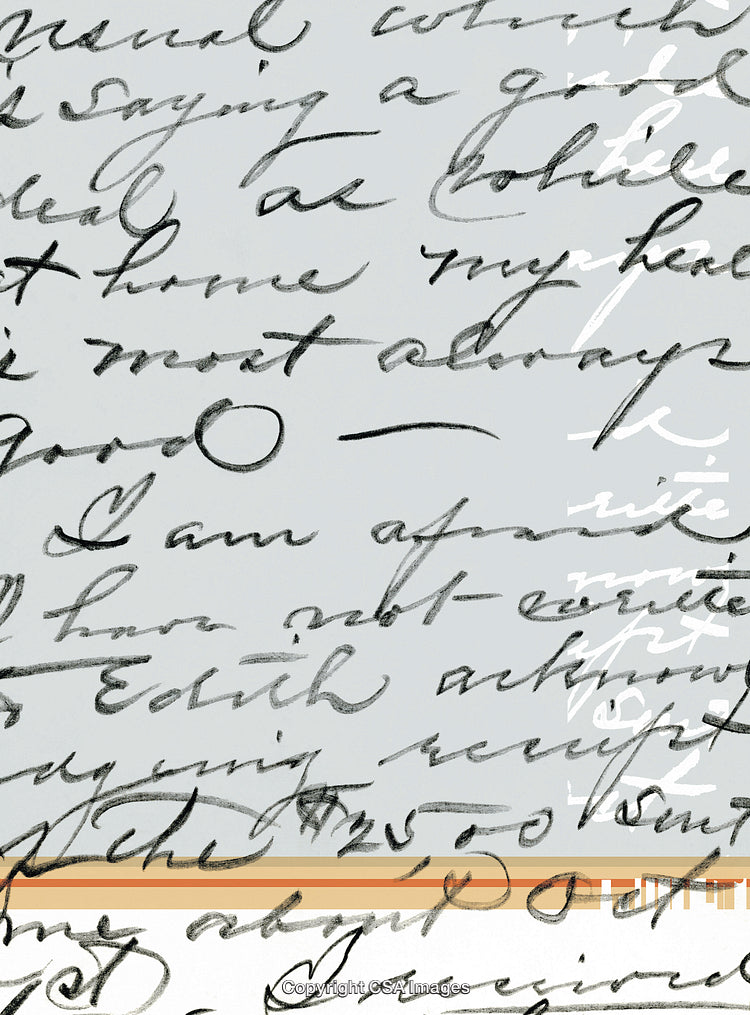 usual which
is saying a good
deal as while
at home my heal
is most always
good —
I am afraid
I have not writte
to Edith acknow
edgeing receipt
of the $25.00 sent
me about Oct
I received
Copyright CSA Images